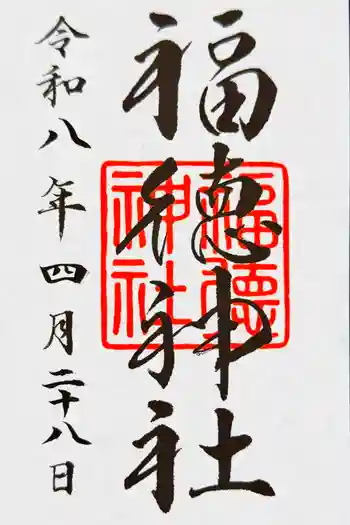 福徳神社
福徳神社
令和八年四月二十八日